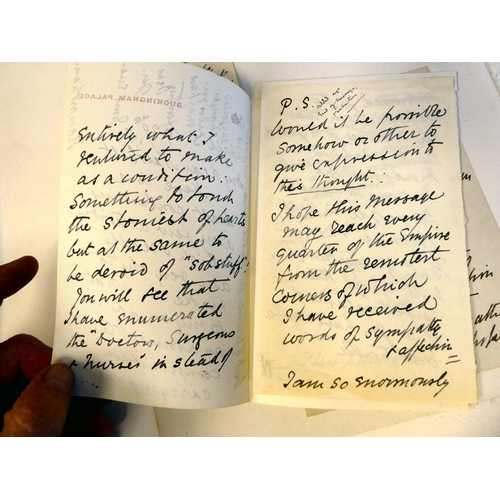 BUCKINGHAM PALACE.
Entirely what I
ventured to make
as a condition:
Something to touch
the stoniest of hearts
but at the same to
be devoid of "sobstuff"!
You will see that
I have enumerated
the "Doctors, Surgeons
& Nurses" instead!
P.S.
Would it be possible
Somehow or other to
give expression to
this thought:
I hope this message
may reach every
quarter of the Empire
from the remotest
corners of which
I have received
words of sympathy
& affection
I am so enormously